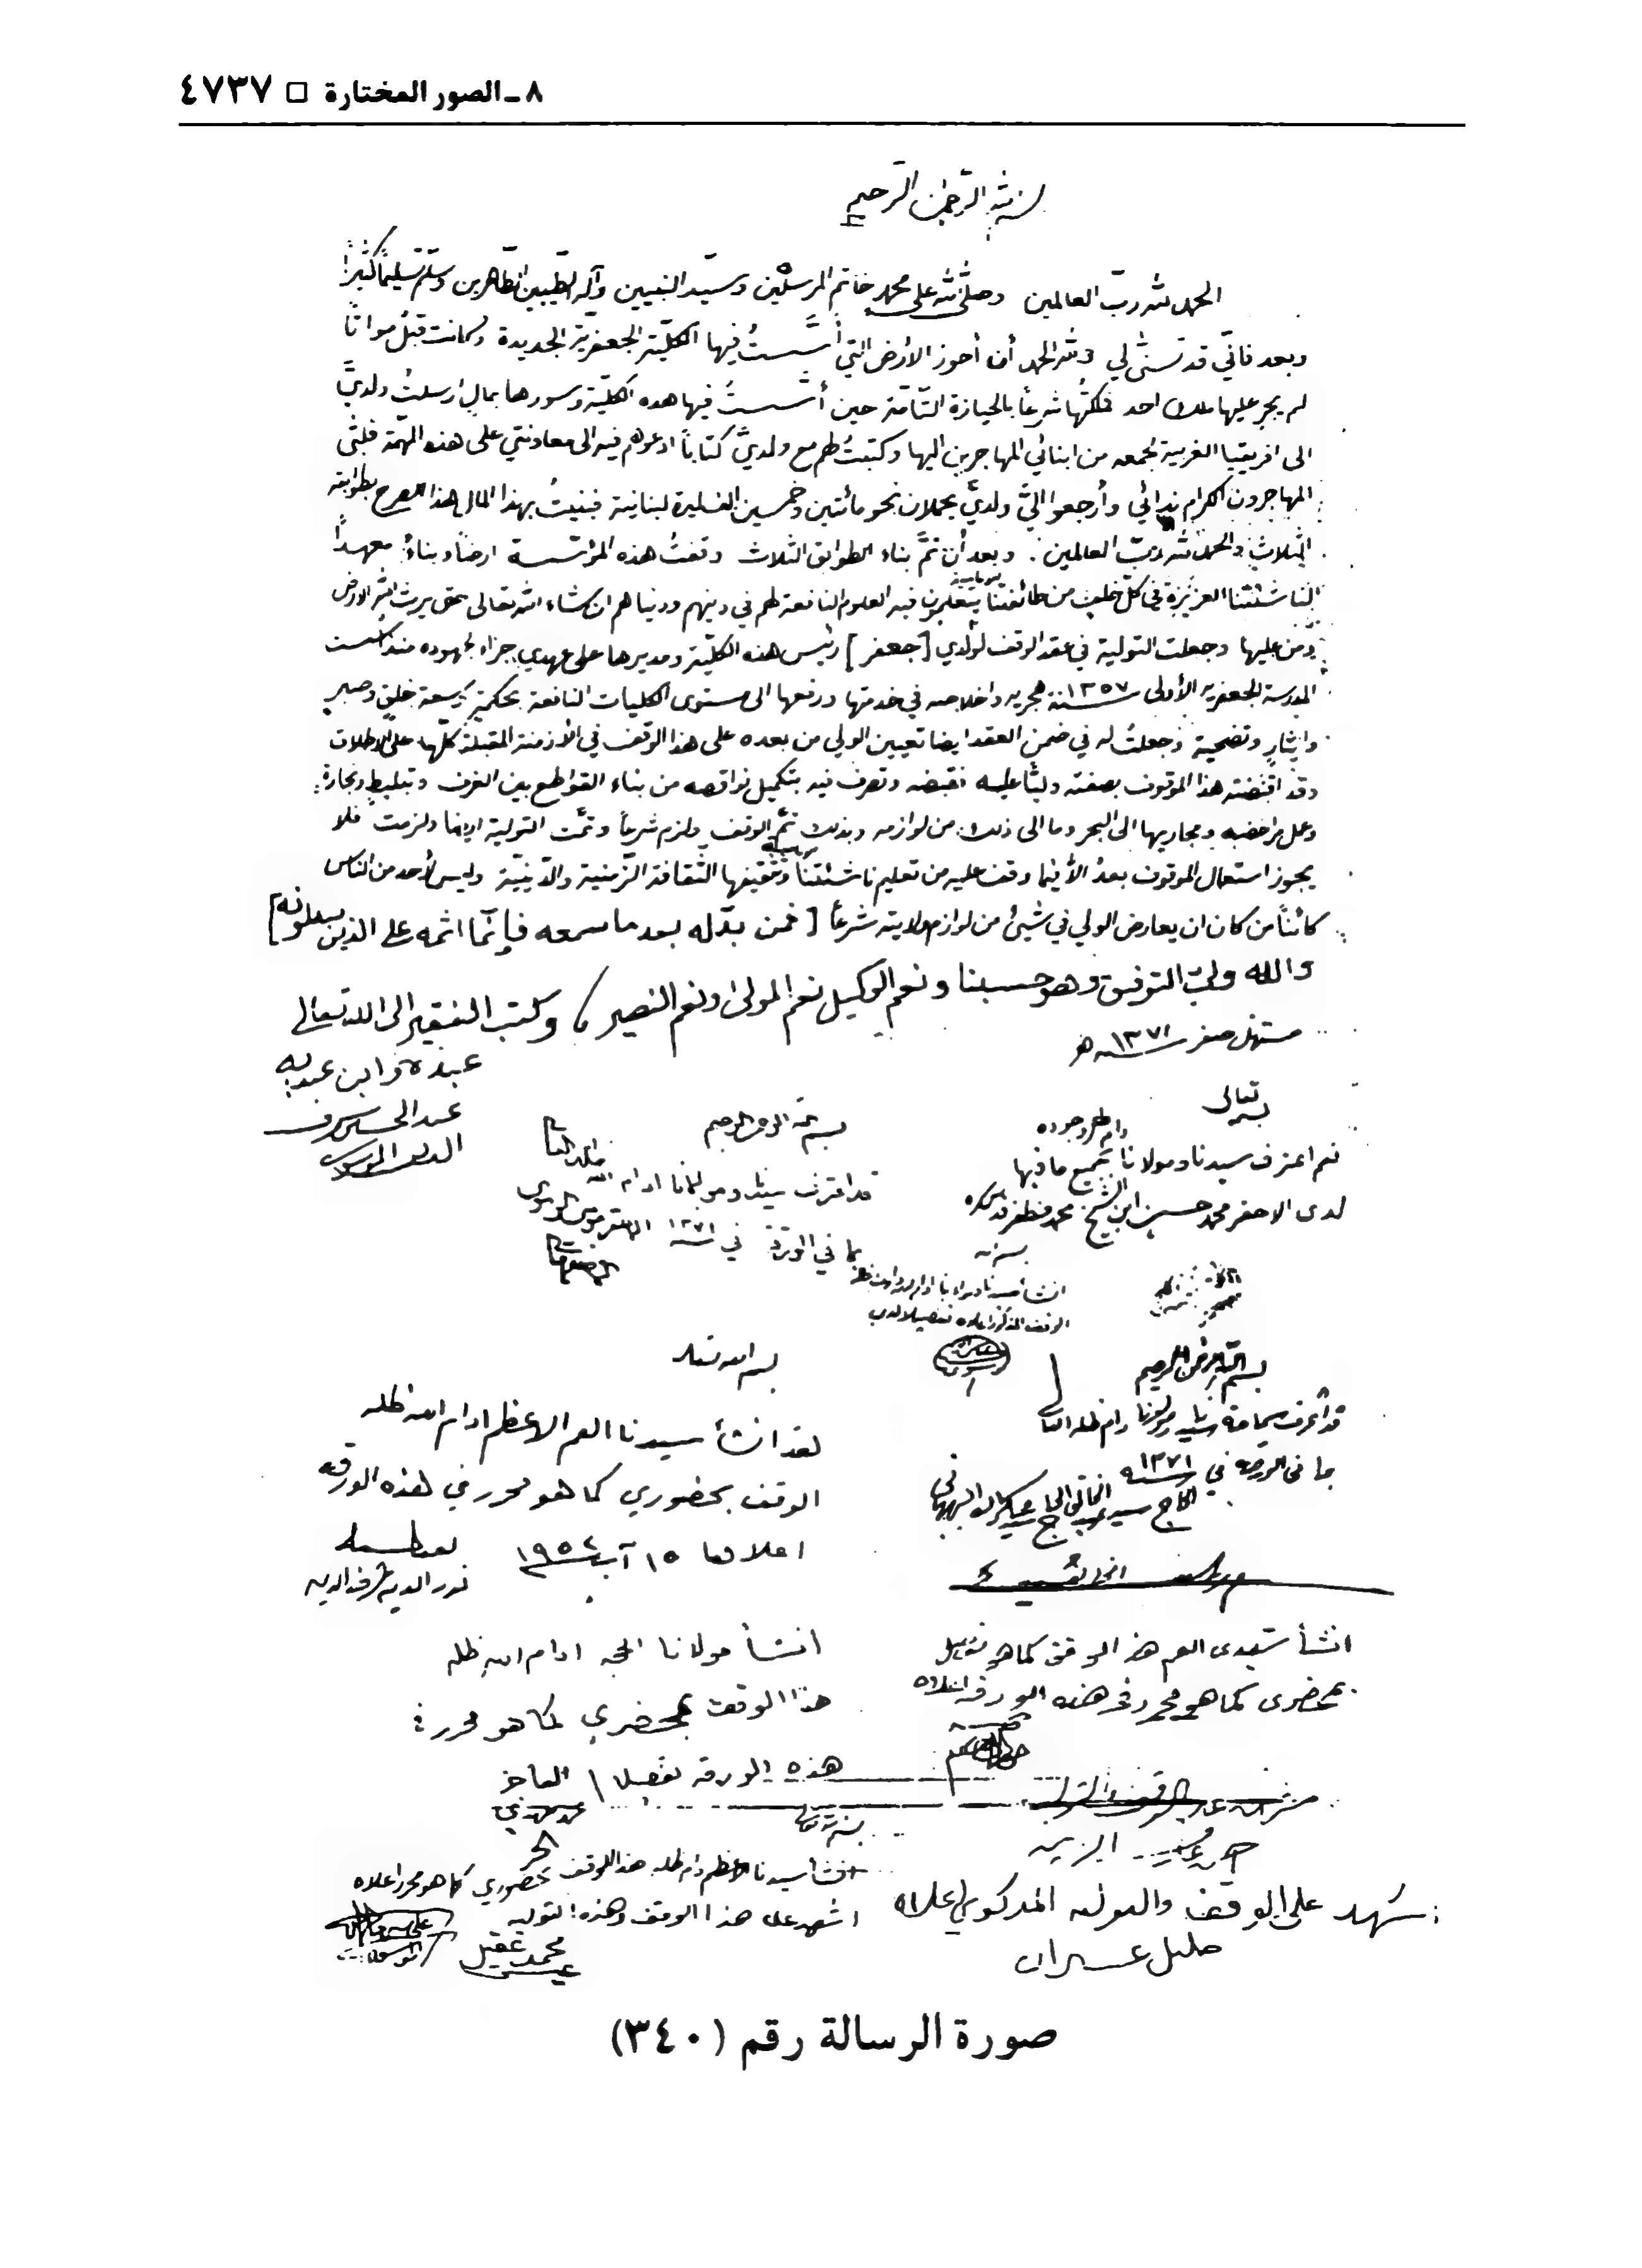 ٨ ـ الصور المختارة □ ٤٧٣٧
بسم الله الرحمن الرحيم
الحمد لله ربّ العالمين وصلّى الله على محمد خاتم المرسلين وسيّد النبيين وآله الطيبين الطاهرين وسلّم تسليماً كثيراً
وبعد فانّي قد تسنّى لي ولله الحمد أن أحوز الأرض التي أسّستُ فيها الكليّة الجعفريّة الجديدة وكانت قبلُ مواتاً
لم يجرِ عليها ملك احد فملكتُها شرعاً بالحيازة التامّة حين أسّستُ فيها هذه الكليّة وسورها بمالٍ أرسلتُ ولديَّ
الى افريقيا الغربية لجمعه من ابنائي المهاجرين اليها وكتبتُ لهم مع ولديَّ كتاباً ادعوهم فيه الى معاونتي على هذه المهمّة فلبّى
المهاجرون الكرام ندائي وأرجعوا اليَّ ولديَّ يحملان نحو مائتين وخمسين الف ليرة لبنانية فبنيتُ بهذا المال هذا الصرح بطوابقه
الثلاث والحمد لله ربّ العالمين. وبعد أن تمَّ بناء الطوابق الثلاث وقفتُ هذه المؤسّسة ارضاً وبناءً معهداً
لناشئتنا العزيزة في كلّ خلف من طائفتنا يتعلمون فيه العلوم النافعة لهم في دينهم ودنياهم ان شاء الله تعالى حتى يرث الله الارض
ومن عليها وجعلت التولية في عقد الوقف لولدي [جعفر] رئيس هذه الكليّة ومديرها على عهدي جزاء لجهوده منذ اسست
المدرسة الجعفرية الأولى سنة ١٣٥٧ هجرية واخلاصه في خدمتها ورفعها الى مستوى الكليات النافعة بحكمةٍ وسعة خلقٍ وصبرٍ
وايثارٍ وتضحية وجعلتُ له في ضمن العقد ايضا تعيين الولي من بعده على هذا الوقف في الأزمنة المقبلة كلّها على الاطلاق
وقد اقبضته هذا الموقوف بصفته وليّاً عليه فقبضه وتصرف فيه بتكميل نواقصه من بناء القواطع بين الغرف وتبليطٍ ونجارةٍ
وعمل مراحضه ومجاريها الى البحر وما الى ذلك من لوازمه وبذلك تمَّ الوقف ولزم شرعاً وتمّت التولية ايضا ولزمت فلا
يجوز استعمال الموقوف بعدُ الّا فيما وقف عليه من تعليم ناشئتنا وتثقيفها الثقافة الزمنية والدّينيّة وليس لأحد من الناس
كائناً من كان ان يعارض الولي في شيئ من لوازم ولايته شرعاً [فمن بدّله بعد ما سمعه فإنّما اثمه على الذين يبدلونه]
والله وليّ التوفيق وهو حسبنا ونعم الوكيل نعم المولى ونعم النصير، وكتب الفقير الى الله تعالى
مستهل صفر سنة ١٣٧١ هـ
عبده وابن عبديه
عبد الحسين شرف
الدين الموسوي
بسمه تعالى
دام ظله وجوده
نعم اعترف سيدنا ومولانا بجميع ما فيها
لدى الاحقر محمد حسين ابن الشيخ محمد مظفر قدس سره
بسم الله الرحمن الرحيم
قد اعترف سيدنا ومولانا ادام الله
بما في الورقة في سنة ١٣٧١
انشأ سيدنا
الوقف المذكور اعلاه تفصيلا لدي
بسم الله الرحمن الرحيم
قد اعترف سماحة سيدنا ومولانا دام ظله العالي
بما في الورقة في سنة ١٣٧١
بسم الله تعالى
لقد انشأ سيدنا العم الاعظم ادام الله ظله
الوقف بحضوري كما هو محرر في هذه الورقة
اعلاها ١٥ آب
نور الدين شرف الدين
انشأ سيدي العم هذا الوقف كما هو
بمحضري كما هو محرر في هذه الورقة اعلاه
انشأ مولانا الحجة ادام الله ظله
هذا الوقف بمحضري كما هو محرر في
هذه الورقة تفصيلا العاجز
شهد على الوقف والتولية المذكورين اعلاه
خليل عسيران
انشأ سيدنا الاعظم دام ظله هذا الوقف بحضوري كما هو محرر اعلاه
اشهد على هذا الوقف وهذه التولية
محمد عقيل
صورة الرسالة رقم (٣٤٠)